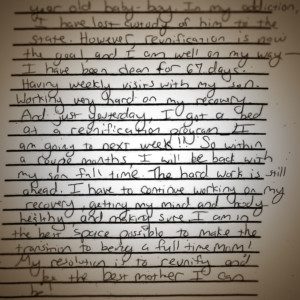 year old baby boy. In my addiction,
I have lost custody of him to the
state. However reunification is now
the goal and I am well on my way —
I have been clean for 67 days.
Having weekly visits with my son.
Working very hard on my recovery.
And just yesterday, I got a bed
at a reunification program I
am going to next week!! So within
a couple months I will be back with
my son full time. The hard work is still
ahead. I have to continue working on my
recovery, getting my mind and body
healthy and making sure I am in
the best space possible to make the
transition to being a full time mom!
My resolution is to reunify and
be the best mother I can
be